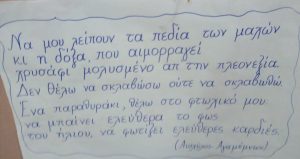 Να μου λείπουν τα πεδία των μαχών
κι η δόξα, που αιμορραγεί
χρυσάφι μολυσμένο απ' την πλεονεξία.
Δεν θέλω να σκλαβώσω ούτε να σκλαβωθώ.
Ένα παραθυράκι, θέλω στο φτωχικό μου
να μπαίνει ελεύθερα το φως
του ήλιου, να φωτίζει ελεύθερες καρδιές.